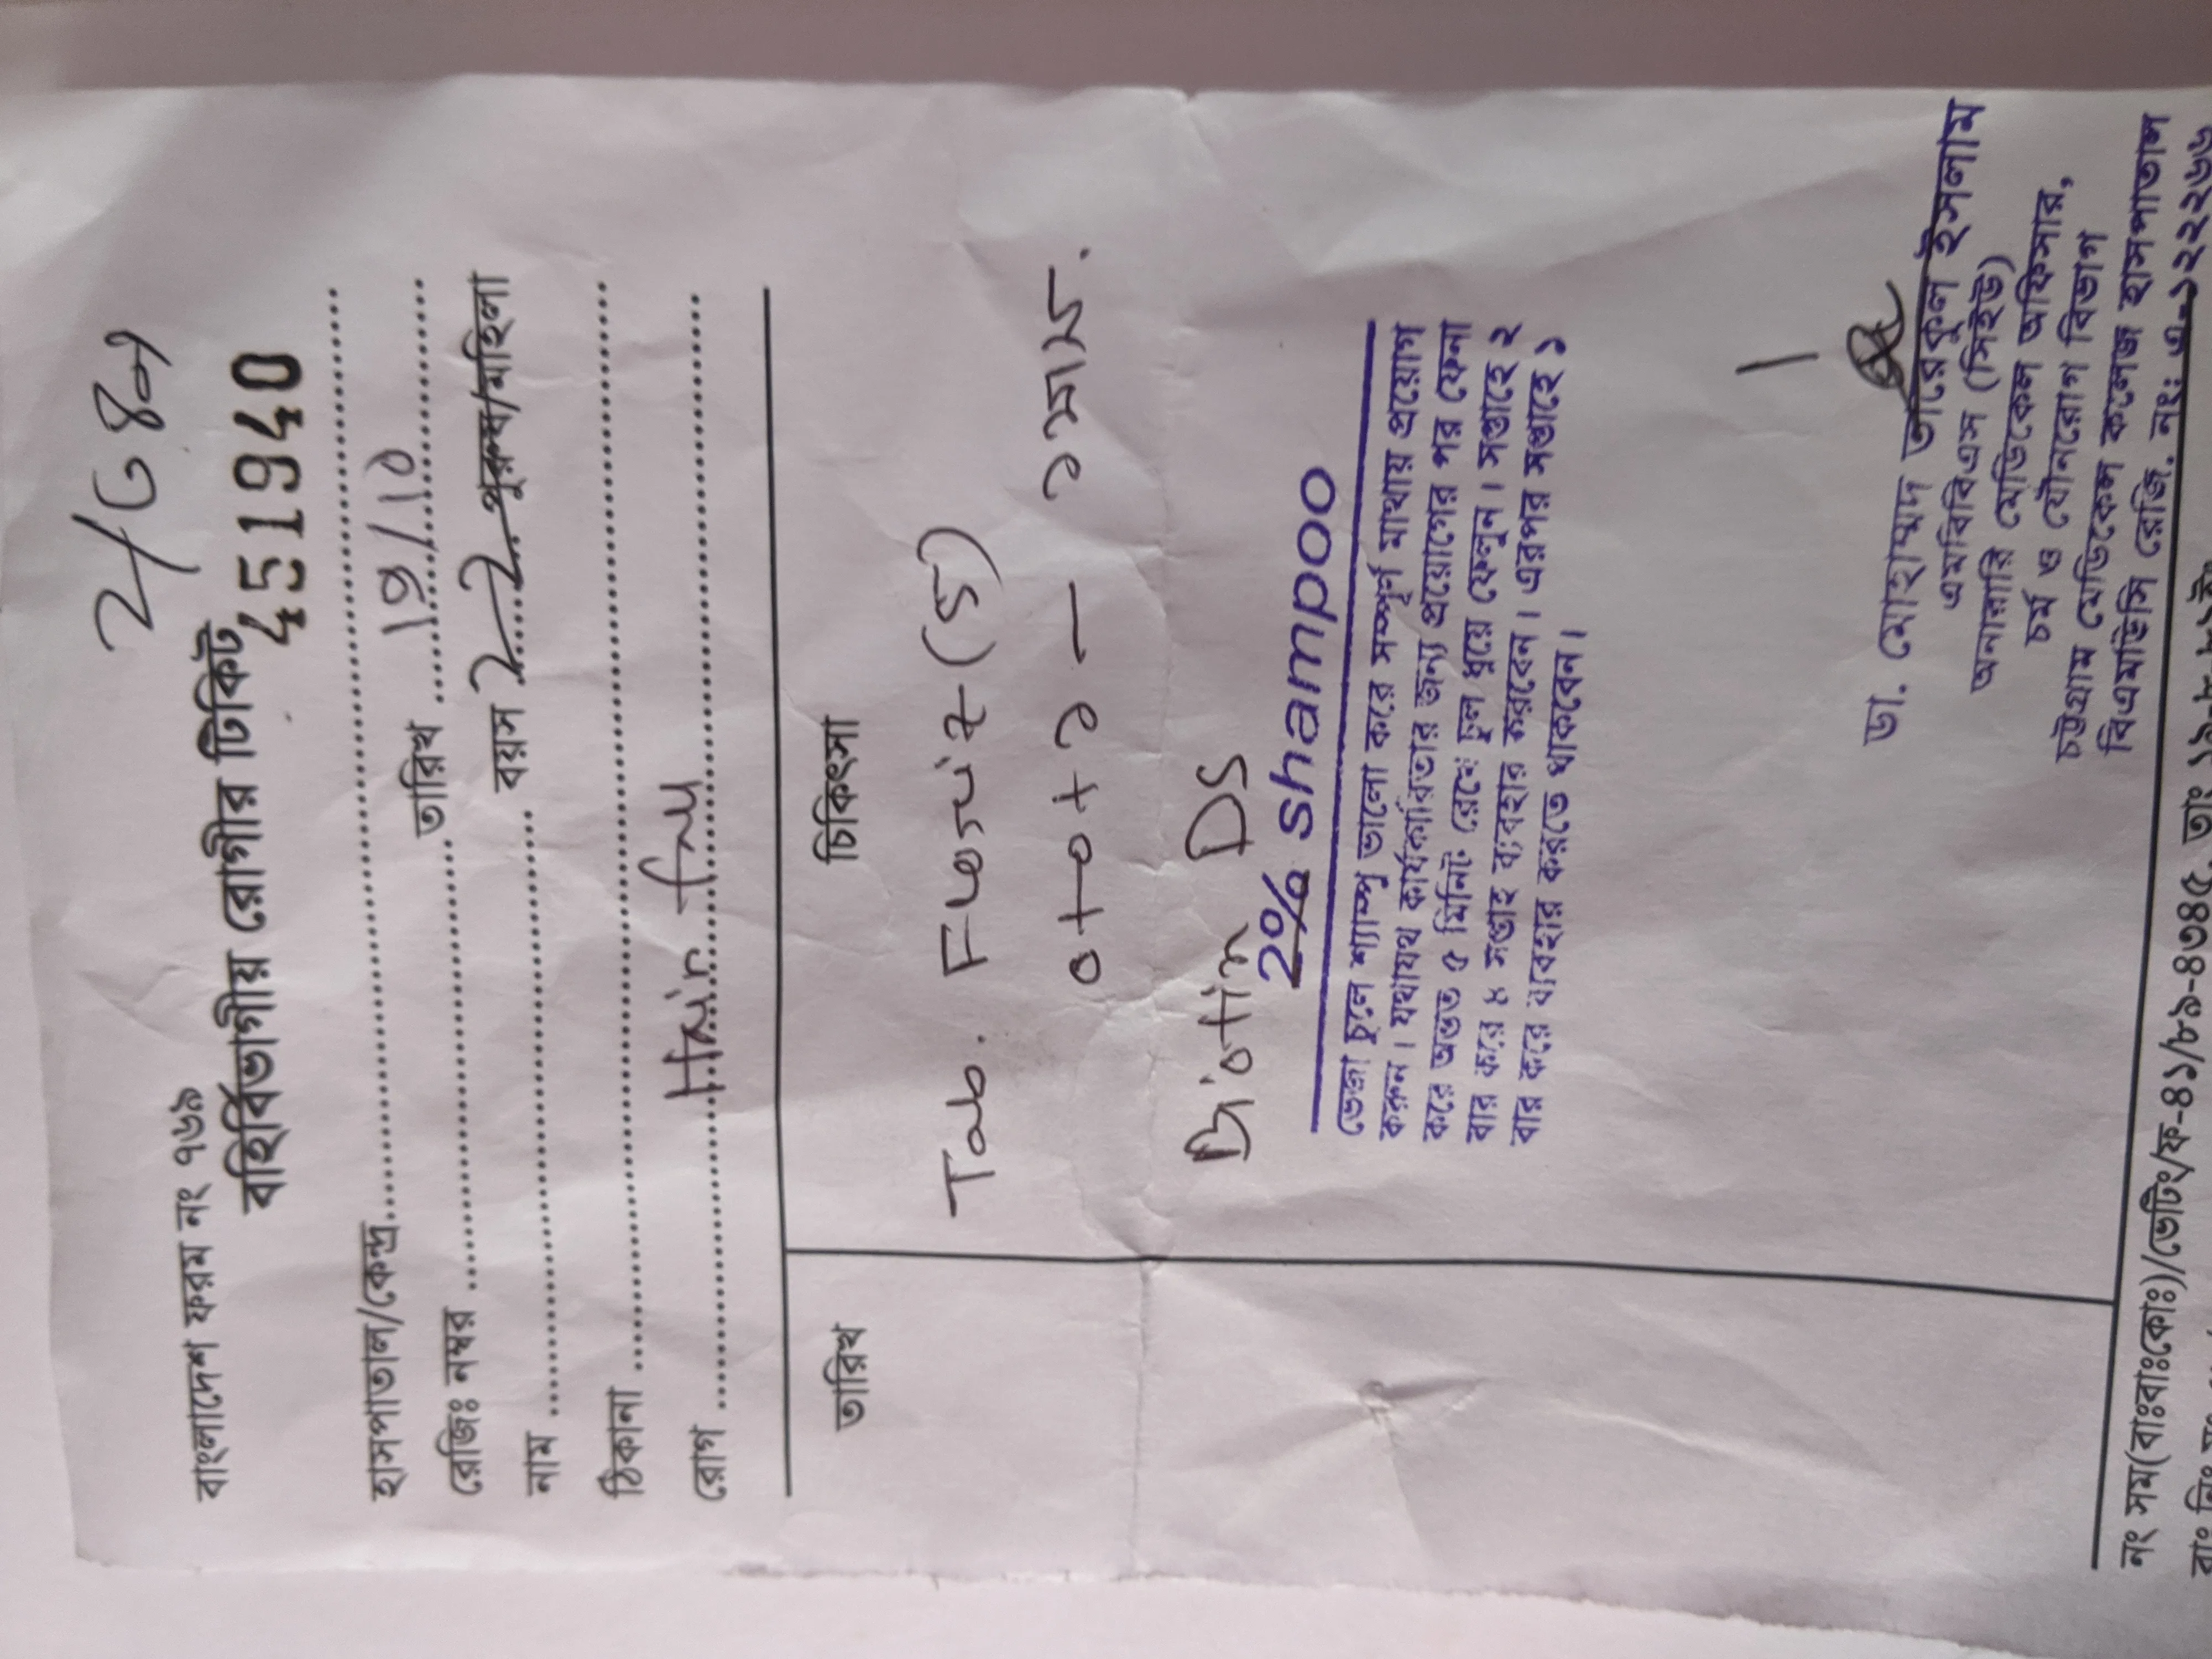 বাংলাদেশ ফরম নং ৭৬৯
বহির্বিভাগীয় রোগীর টিকিট
451940
হাসপাতাল/কেন্দ্র
রেজিঃ নম্বর তারিখ 19/10
নাম বয়স 22 পুরুষ/মহিলা
ঠিকানা
রোগ Hair fall
তারিখ চিকিৎসা
Tab. (5)
0+0+১ — ১মাস.
Biotin DS
2% shampoo
ভেজা চুলে শ্যাম্পু ভালো করে সম্পূর্ণ মাথায় প্রয়োগ
করুন। যথাযথ কার্যকারিতার জন্য প্রয়োগের পর ফেনা
করে অন্তত ৫ মিনিট রেখে চুল ধুয়ে ফেলুন। সপ্তাহে ২
বার করে ৪ সপ্তাহ ব্যবহার করবেন। এরপর সপ্তাহে ১
বার করে ব্যবহার করতে থাকবেন।
ডা. মোহাম্মদ তারেকুল ইসলাম
এমবিবিএস (সিইউ)
অনারারি মেডিকেল অফিসার,
চর্ম ও যৌনরোগ বিভাগ
চট্টগ্রাম মেডিকেল কলেজ হাসপাতাল
বিএমডিসি রেজি. নং: এ-১২২২৬৬
নং সম(বাঃবাঃকোঃ)/ভেটিং/ফ-৪১/৮৯-৪৩৪৫, তাং